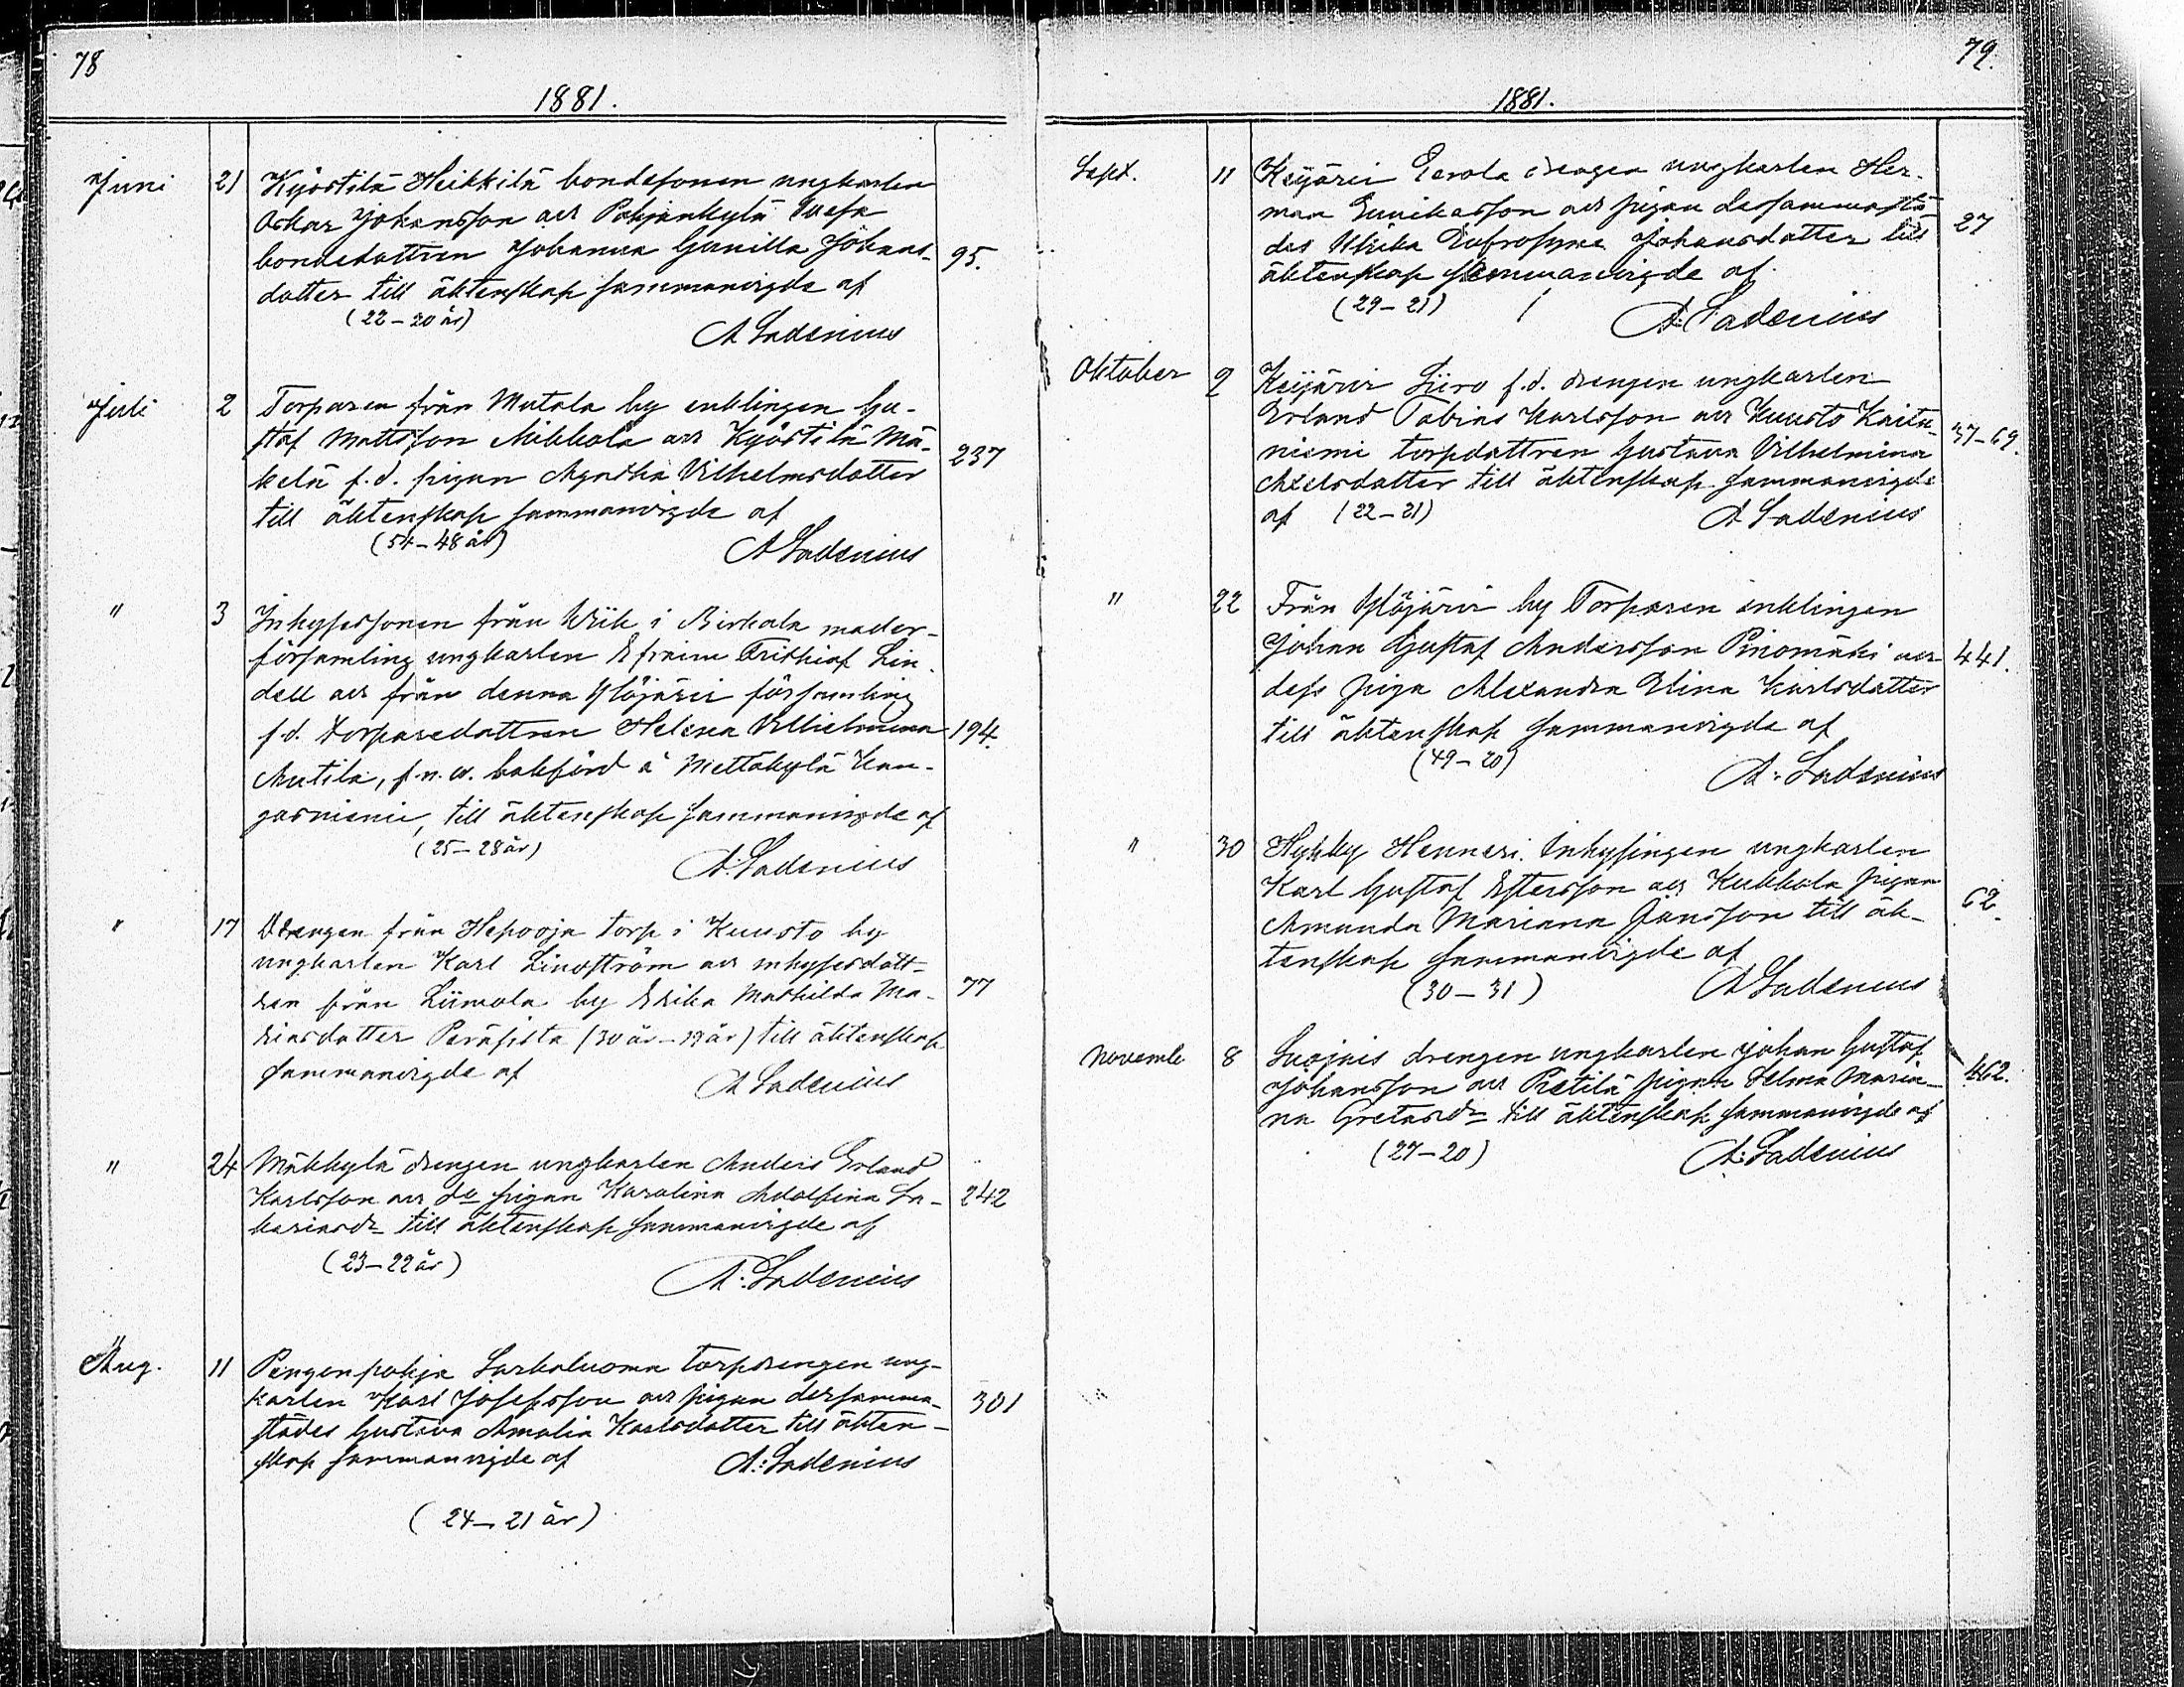 78
1881.
Juni 21 Kyöstilä Heikkilä bondesonen ungkarlen
Oskar Johansson och Pohjankylä
bondedottren Johanna Gunilla Johans-
dotter till äktenskap sammanvigde af 95.
(22-20 år)
A Ladenius
Juli 2 Torparen från Mutala by enklingen Gu-
staf Mattsson Mikkola och Kyöstilä Mä-
kelä f.d. pigan Agatha Vilhelmsdotter 237
till äktenskap sammanvigde af
(54-48 år)
A Ladenius
" 3 Inhysessonen från Wiik i Birkala moder-
församling ungkarlen Efraim Frithiof Lin-
dell och från denna Ylöjärvi församling
f.d. torparedottren Helena Vilhelmina 194.
Autila, f.n.w. bokförd å Mettäkylä Kan-
gasniemi, till äktenskap sammanvigde af
(25-28 år)
A. Ladenius
" 17 Drengen från Hepooja torp i Kuusto by
ungkarlen Karl Lindström och inhysesdott-
ren från Liimola by Erika Mathilda Ma- 77
dotter Peräsilta (30 år-19 år) till äktenskap
sammanvigde af
A Ladenius
" 24 Mäkkylä drengen ungkarlen Anders Erland
Karlsson och do pigan Karolina Adolfina Sa- 242
kariasdr till äktenskap sammanvigde af
(23-22 år)
A. Ladenius
Aug. 11 Pengonpohja Sarkaluoma torpdrengen ung-
karlen Karl Josefsson och pigan dersamma- 301
städes Gustava Amalia Karlsdotter till äkten-
skap sammanvigde af A: Ladenius
(24-21 år)
79.
1881.
Sept. 11 Keijärvi Eerola drengen ungkarlen Her-
man och pigan dersammastä-
des Ulrika Eufrosyne Johansdotter till 27
äktenskap sammanvigde af
(29-21)
A: Ladenius
Oktober 9 Keijärvi Siiro f.d. drengen ungkarlen
Erland Tobias Karlsson och Kuusto Kaita-
niemi torpdottren Gustava Vilhelmina 37-69.
Axelsdotter till äktenskap sammanvigde
af (22-21) A Ladenius
" 22 Från Ylöjärvi by Torparen enklingen
Johan Gustaf Andersson Pinomäki och 441.
dess piga Alexandra Elina Karlsdotter
till äktenskap sammanvigde af
(49-20)
A. Ladenius
" 30 Hyhky Henneri Inhysingen ungkarlen
Karl Gustaf Estersson och Kukkola pigan
Amanda Mariana Jansson till äk- 62.
tenskap sammanvigde af
(30-31) A Ladenius
Novemb 8 drengen ungkarlen Johan Gustaf
Johansson och Pietilä pigan Selma Maria- 462.
na Gretasdr till äktenskap sammanvigde af
(27-20) A: Ladenius